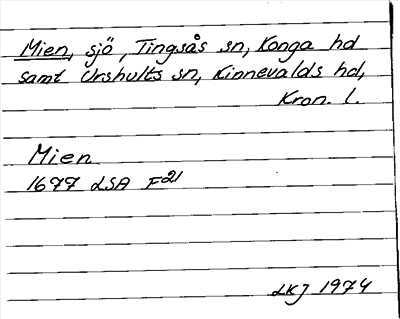 Mien, sjö, Tingsås sn, Konga hd
samt Urshults sn, Kinnevalds hd,
Kron. l.
Mien
1677 LSA F21
LKJ 1974